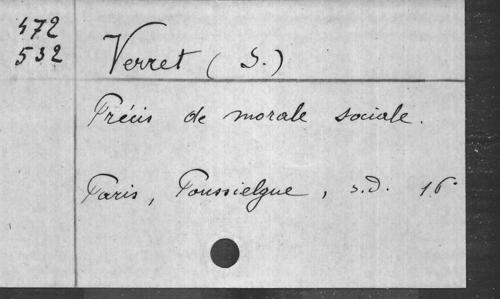 472
532
Verret (S.)
Précis de morale sociale.
Paris, Poussielgue, s.d. 16°